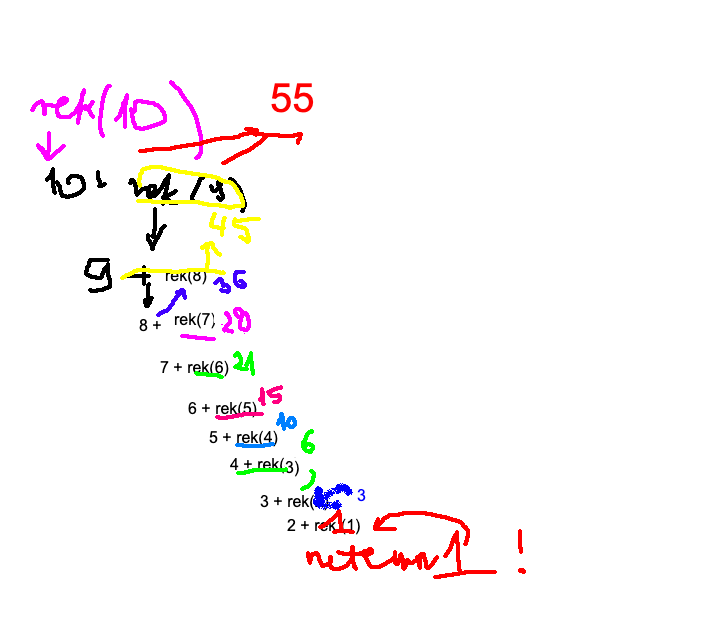 55
rek(10)
10 + rek(9)
45
9 + rek(8) 36
8 + rek(7) 28
7 + rek(6) 21
6 + rek(5) 15
5 + rek(4) 10
4 + rek(3) 6
3 + rek( 3
2 + rek(1) 1
return 1 !